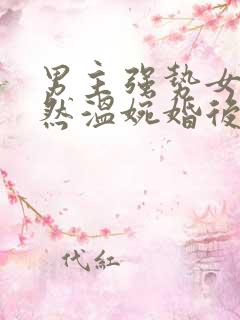 男主强势女
然温婉婚後
代红